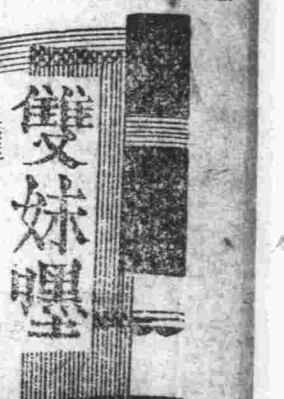 雙妹嚜